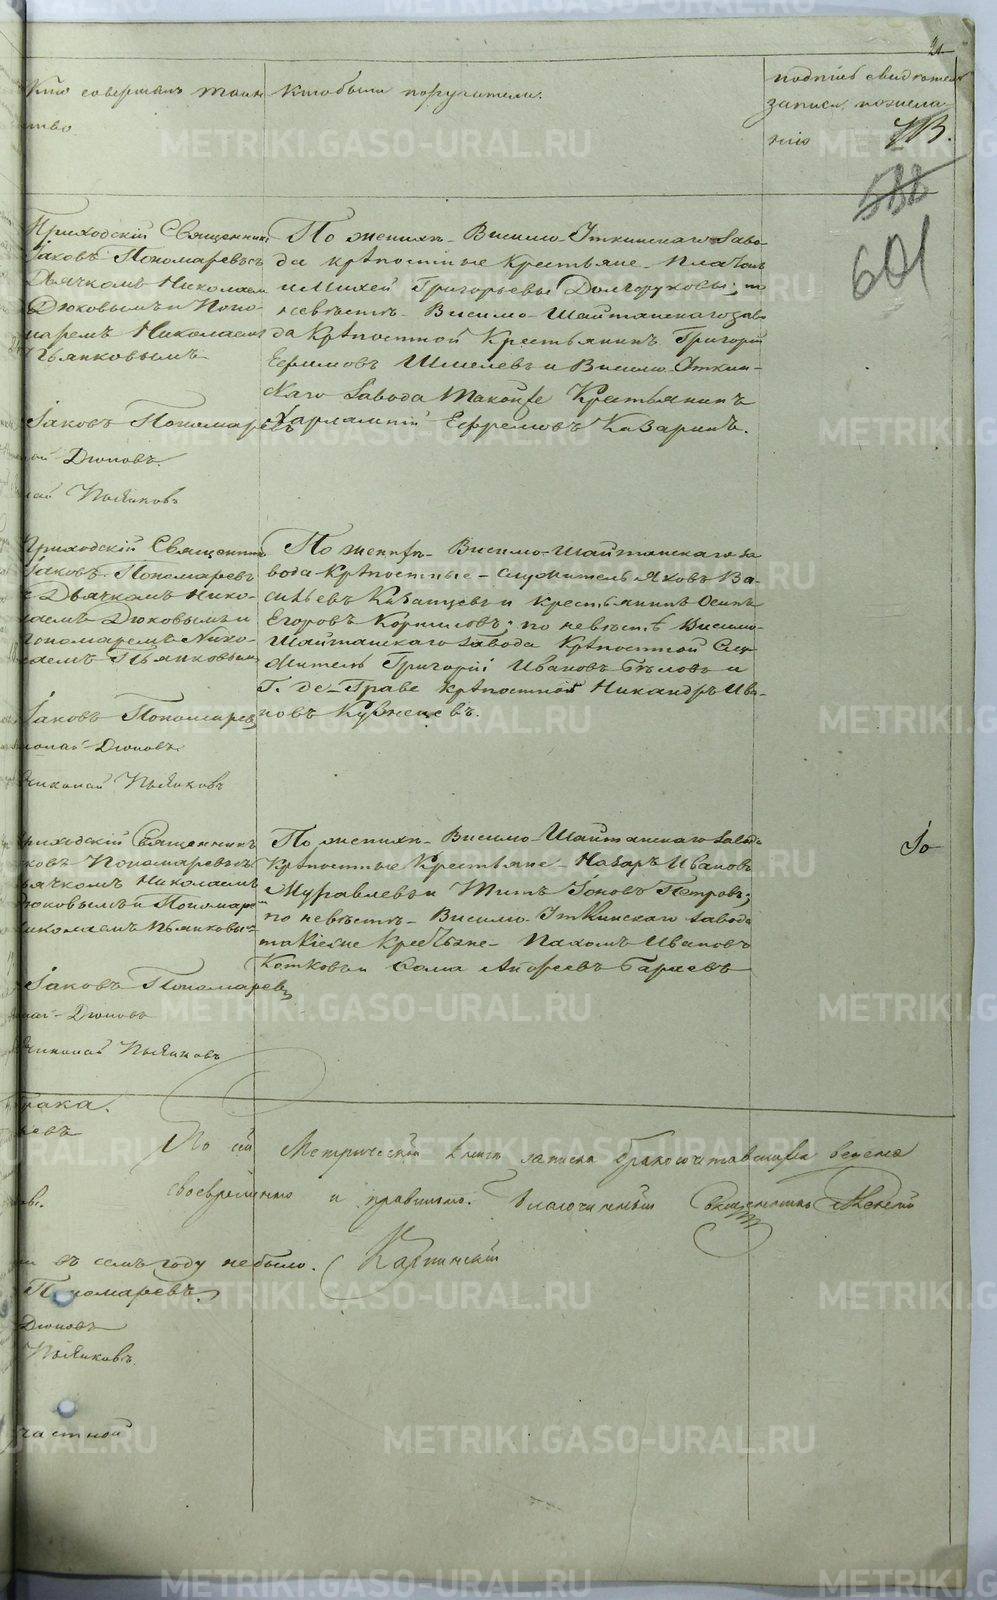 21
Кто совершалъ таин
ство
Кто были поручители.
подпись свидѣтелей
записи по жела
нію
588
601
Приходскій Священникъ
Іаковъ Пономаревъ съ
Дьячкомъ Николаем
Дюковымъ и Поно-
маремъ Николаемъ
Пьянковымъ
Іаковъ Пономаревъ
Дюковъ.
Пьянковъ
По женихѣ - Висимо-Уткинскаго Заво-
да крѣпостные Крестьяне - Платонъ
и Михей Григорьевы Долгоруковы; по
невѣстѣ - Висимо-Шайтанскаго заво-
да Крѣпостной Крестьянинъ Григорій
Ефимовъ Шмелевъ и Висимо-Уткин-
скаго Завода таковой Крестьянинъ
Харлампій Ефремовъ Казаринъ.
Приходскій Священникъ
Іаковъ Пономаревъ
съ Дьячкомъ Нико-
лаемъ Дюковымъ и
Пономаремъ Нико-
лаемъ Пьянковымъ
Іаковъ Пономаревъ
Николай Дюковъ
Николай Пьянковъ
По женихѣ - Висимо-Шайтанскаго за
вода Крѣпостные - служитель Яковъ Ва-
сильевъ Казанцевъ и крестьянинъ Осипъ
Егоровъ Корниловъ; по невѣстѣ Висимо-
Шайтанскаго завода Крѣпостной Слу-
житель Григорій Ивановъ Бѣловъ и
Г. де-Граве крѣпостной Никандръ Ива-
новъ Кузнецевъ.
Приходскій Священникъ
Іаковъ Пономаревъ съ
Дьячкомъ Николаемъ
Дюковымъ и Пономаре
Николаемъ Пьянковы
Іаковъ Пономаревъ
Дюковъ
Николай Пьянковъ
По женихѣ - Висимо-Шайтанскаго завода
Крѣпостные Крестьяне - Назаръ Ивановъ
Муравлевъ и Титъ Іоновъ Петровъ;
по невѣстѣ - Висимо-Уткинскаго завода
такіеже Крестьяне - Пахомъ Ивановъ
Котковъ и Сама Андреевъ Барневъ
брака.
По сей Метрической книги записка бракосочетавшихся ведена
своевременно и правильно. Благочинный Священникъ Алексій
Карпинскій
въ семъ году небыло.
Пономаревъ
Дюковъ
Пьянковъ.
частной
METRIKI.GASO-URAL.RU